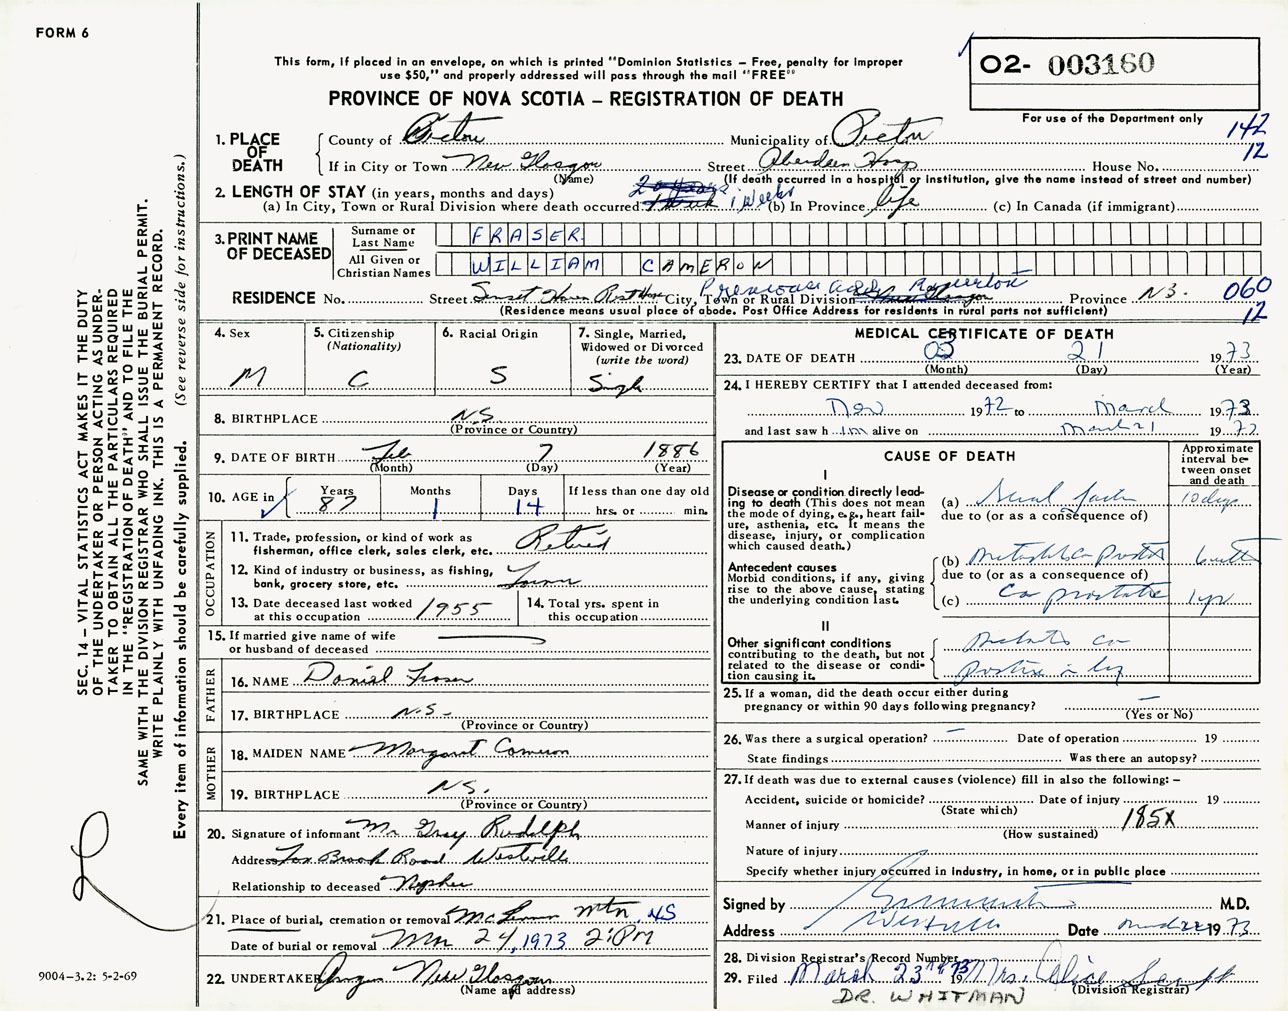 FORM 6
This form, if placed in an envelope, on which is printed "Dominion Statistics – Free, penalty for improper
use $50," and properly addressed will pass through the mail "FREE"
02- 003160
PROVINCE OF NOVA SCOTIA – REGISTRATION OF DEATH
For use of the Department only
142
12
1. PLACE OF DEATH
County of Pictou Municipality of Pictou
If in City or Town New Glasgow Street Aberdeen Hosp House No.
(Name) (If death occurred in a hospital or institution, give the name instead of street and number)
2. LENGTH OF STAY (in years, months and days)
(a) In City, Town or Rural Division where death occurred weeks (b) In Province life (c) In Canada (if immigrant)
3. PRINT NAME OF DECEASED
Surname or Last Name FRASER
All Given or Christian Names WILLIAM CAMERON
Previous add.
RESIDENCE No. Street Sunset Haven Rest Home City, Town or Rural Division Province N.S. 060
(Residence means usual place of abode. Post Office Address for residents in rural parts not sufficient) 12
4. Sex M
5. Citizenship (Nationality) C
6. Racial Origin S
7. Single, Married, Widowed or Divorced (write the word) Single
8. BIRTHPLACE N.S.
(Province or Country)
9. DATE OF BIRTH Feb 7 1886
(Month) (Day) (Year)
10. AGE in Years 87 Months 1 Days 14 If less than one day old hrs. or min.
OCCUPATION
11. Trade, profession, or kind of work as fisherman, office clerk, sales clerk, etc. Retired
12. Kind of industry or business, as fishing, bank, grocery store, etc. Farmer
13. Date deceased last worked at this occupation 1955
14. Total yrs. spent in this occupation
15. If married give name of wife or husband of deceased
FATHER
16. NAME Daniel Fraser
17. BIRTHPLACE N.S.
(Province or Country)
MOTHER
18. MAIDEN NAME Margaret Cameron
19. BIRTHPLACE N.S.
(Province or Country)
20. Signature of informant Mr Gray Rudolph
Address Fox Brook Road Westville
Relationship to deceased Nephew
21. Place of burial, cremation or removal Mtn. NS
Date of burial or removal Mar 24, 1973 2 PM
22. UNDERTAKER New Glasgow
(Name and address)
MEDICAL CERTIFICATE OF DEATH
23. DATE OF DEATH 03 21 1973
(Month) (Day) (Year)
24. I HEREBY CERTIFY that I attended deceased from:
Nov 1972 to March 1973
and last saw him alive on March 21 1973
CAUSE OF DEATH
Approximate interval between onset and death
I
Disease or condition directly leading to death (This does not mean the mode of dying, e.g., heart failure, asthenia, etc. It means the disease, injury, or complication which caused death.)
(a) Renal failure 10 days
due to (or as a consequence of)
Antecedent causes
Morbid conditions, if any, giving rise to the above cause, stating the underlying condition last.
(b)
due to (or as a consequence of)
(c) Ca prostate 1 yr
II
Other significant conditions
contributing to the death, but not related to the disease or condition causing it.
25. If a woman, did the death occur either during pregnancy or within 90 days following pregnancy? —
(Yes or No)
26. Was there a surgical operation? — Date of operation 19
State findings Was there an autopsy?
27. If death was due to external causes (violence) fill in also the following: –
Accident, suicide or homicide? Date of injury 19
(State which)
Manner of injury 185X
(How sustained)
Nature of injury
Specify whether injury occurred in industry, in home, or in public place
Signed by M.D.
Address Westville Date 1973
28. Division Registrar's Record Number
29. Filed March 23rd 1973 Mrs. Alice
(Division Registrar)
DR. WHITMAN
SEC. 14 – VITAL STATISTICS ACT MAKES IT THE DUTY
OF THE UNDERTAKER OR PERSON ACTING AS UNDER-
TAKER TO OBTAIN ALL THE PARTICULARS REQUIRED
IN THE "REGISTRATION OF DEATH" AND TO FILE THE
SAME WITH THE DIVISION REGISTRAR WHO SHALL ISSUE THE BURIAL PERMIT.
WRITE PLAINLY WITH UNFADING INK. THIS IS A PERMANENT RECORD.
Every item of information should be carefully supplied. (See reverse side for instructions.)
9004–3.2: 5-2-69